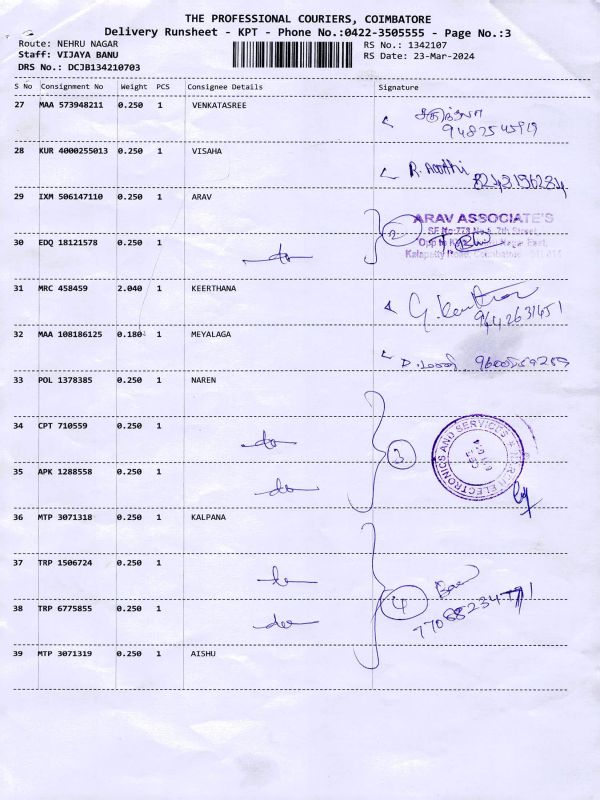 THE PROFESSIONAL COURIERS, COIMBATORE
Delivery Runsheet - KPT - Phone No.:0422-3505555 - Page No.:3
Route: NEHRU NAGAR RS No.: 1342107
Staff: VIJAYA BANU RS Date: 23-Mar-2024
DRS No.: DCJB134210703
S No Consignment No Weight PCS Consignee Details Signature
27 MAA 573948211 0.250 1 VENKATASREE
28 KUR 4000255013 0.250 1 VISAHA
R. Aarthi 8243196284
29 IXM 506147110 0.250 1 ARAV
ARAV ASSOCIATE'S
2
30 EDQ 18121578 0.250 1 do
31 MRC 458459 2.040 1 KEERTHANA
9442631451
32 MAA 108186125 0.180 1 MEYALAGA
33 POL 1378385 0.250 1 NAREN
34 CPT 710559 0.250 1 do
3
ELECTRONICS AND SERVICES
35 APK 1288558 0.250 1 do
36 MTP 3071318 0.250 1 KALPANA
37 TRP 1506724 0.250 1 do
4
38 TRP 6775855 0.250 1 do
39 MTP 3071319 0.250 1 AISHU